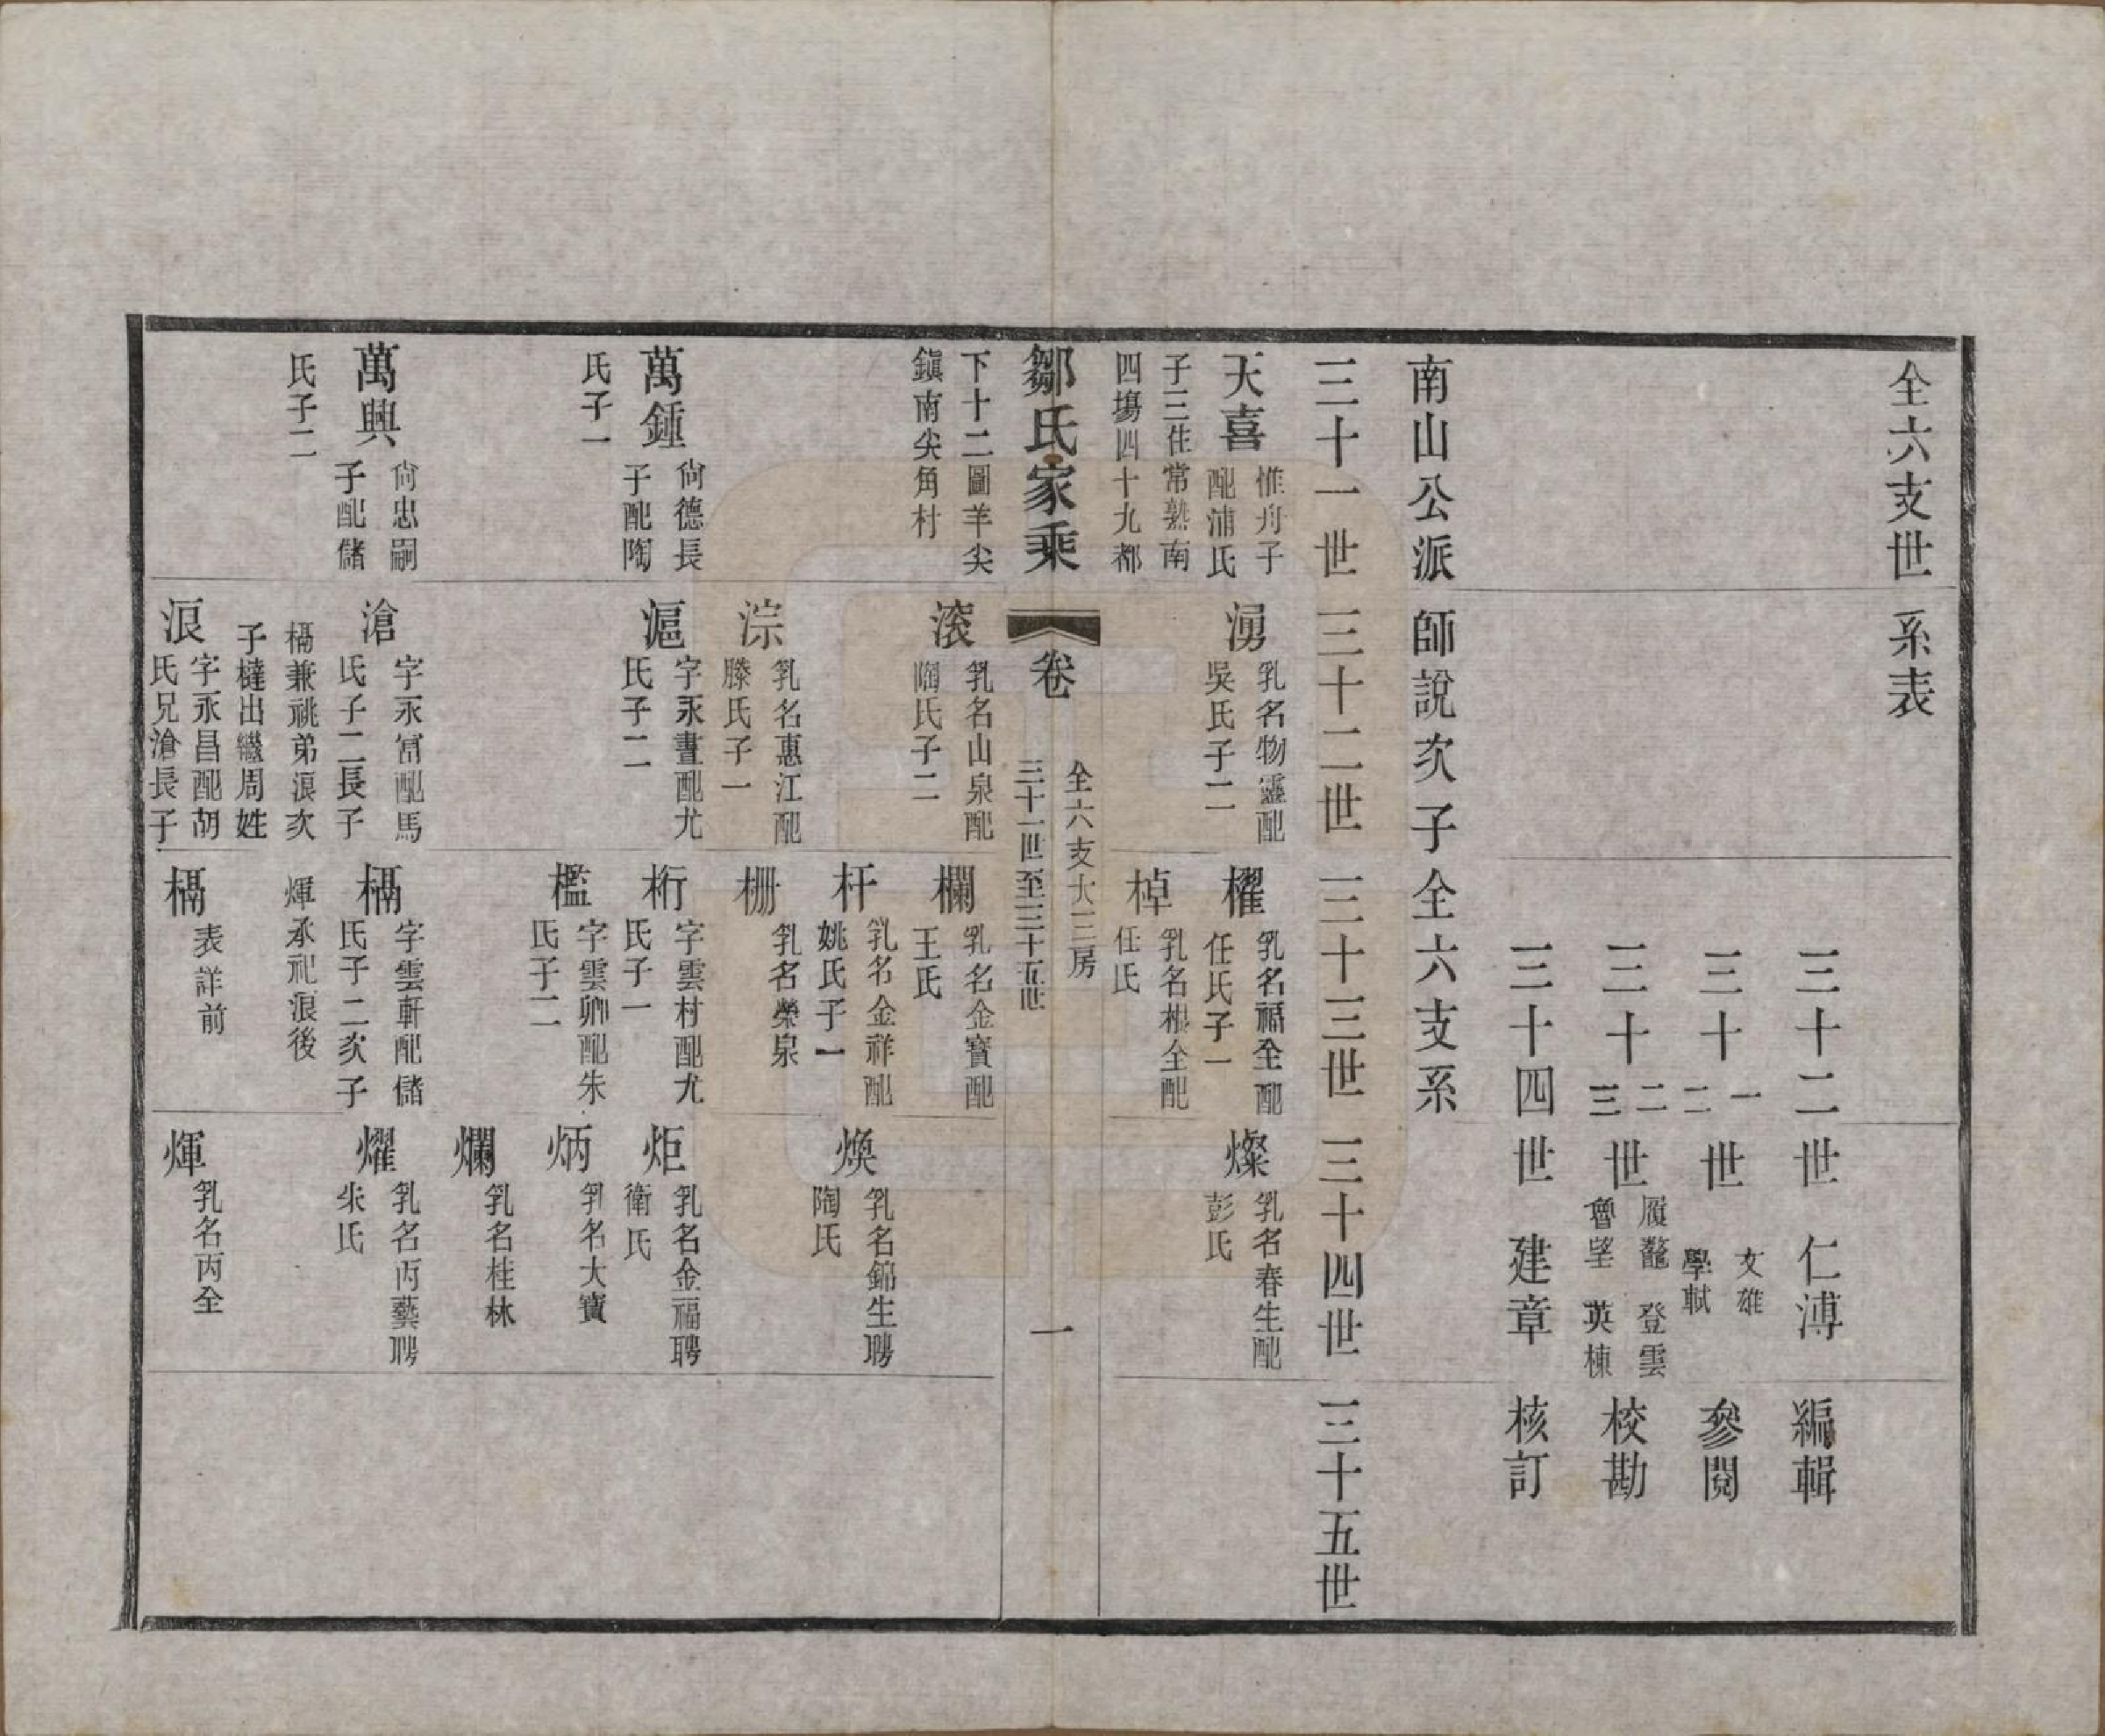 全六支世系表
三十二世 仁溥 編輯
三十一二世 文雄 學軾 參閱
三十二三世 履鼇 登雲 魯望 英棟 校勘
三十四世 建章 核訂
南山公派師說次子全六支系
三十一世 三十二世 三十三世 三十四世 三十五世
天喜 惟舟子配浦氏子三住常熟南四場四十九都
湧 乳名物靈配吳氏子二
櫂 乳名福全配任氏子一
燦 乳名春生配彭氏
棹 乳名根全配任氏
鄒氏家乘 卷 全六支大三房 三十一世至三十五世 一
下十二圖羊尖鎮南尖角村
滚 乳名山泉配陶氏子二
欄 乳名金寶配王氏
杆 乳名金祥配姚氏子一
煥 乳名錦生聘陶氏
淙 乳名惠江配滕氏子一
栅 乳名榮泉
萬鍾 尙德長子配陶氏子一
滬 字永晝配尤氏子二
桁 字雲村配尤氏子一
炬 乳名金福聘衛氏
檻 字雲卿配朱氏子二
炳 乳名大寶
爛 乳名桂林
萬興 尙忠嗣子配儲氏子二
滄 字永富配馬氏子二長子槅兼祧弟浪次子橽出繼周姓
槅 字雲軒配儲氏子二次子煇承祀浪後
燿 乳名丙藝聘朱氏
浪 字永昌配胡氏兄滄長子
槅 表詳前
煇 乳名丙全